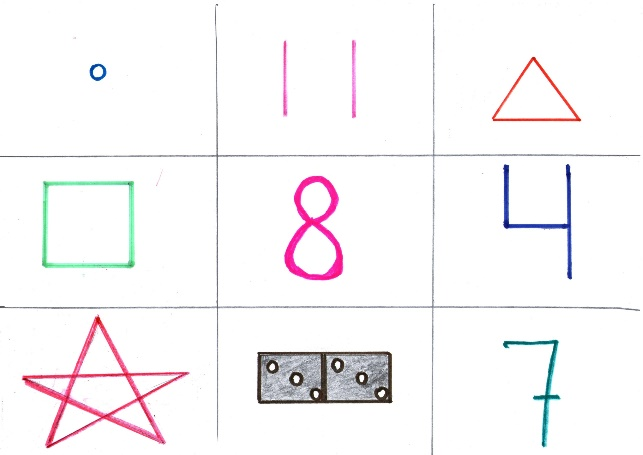 8 4
7